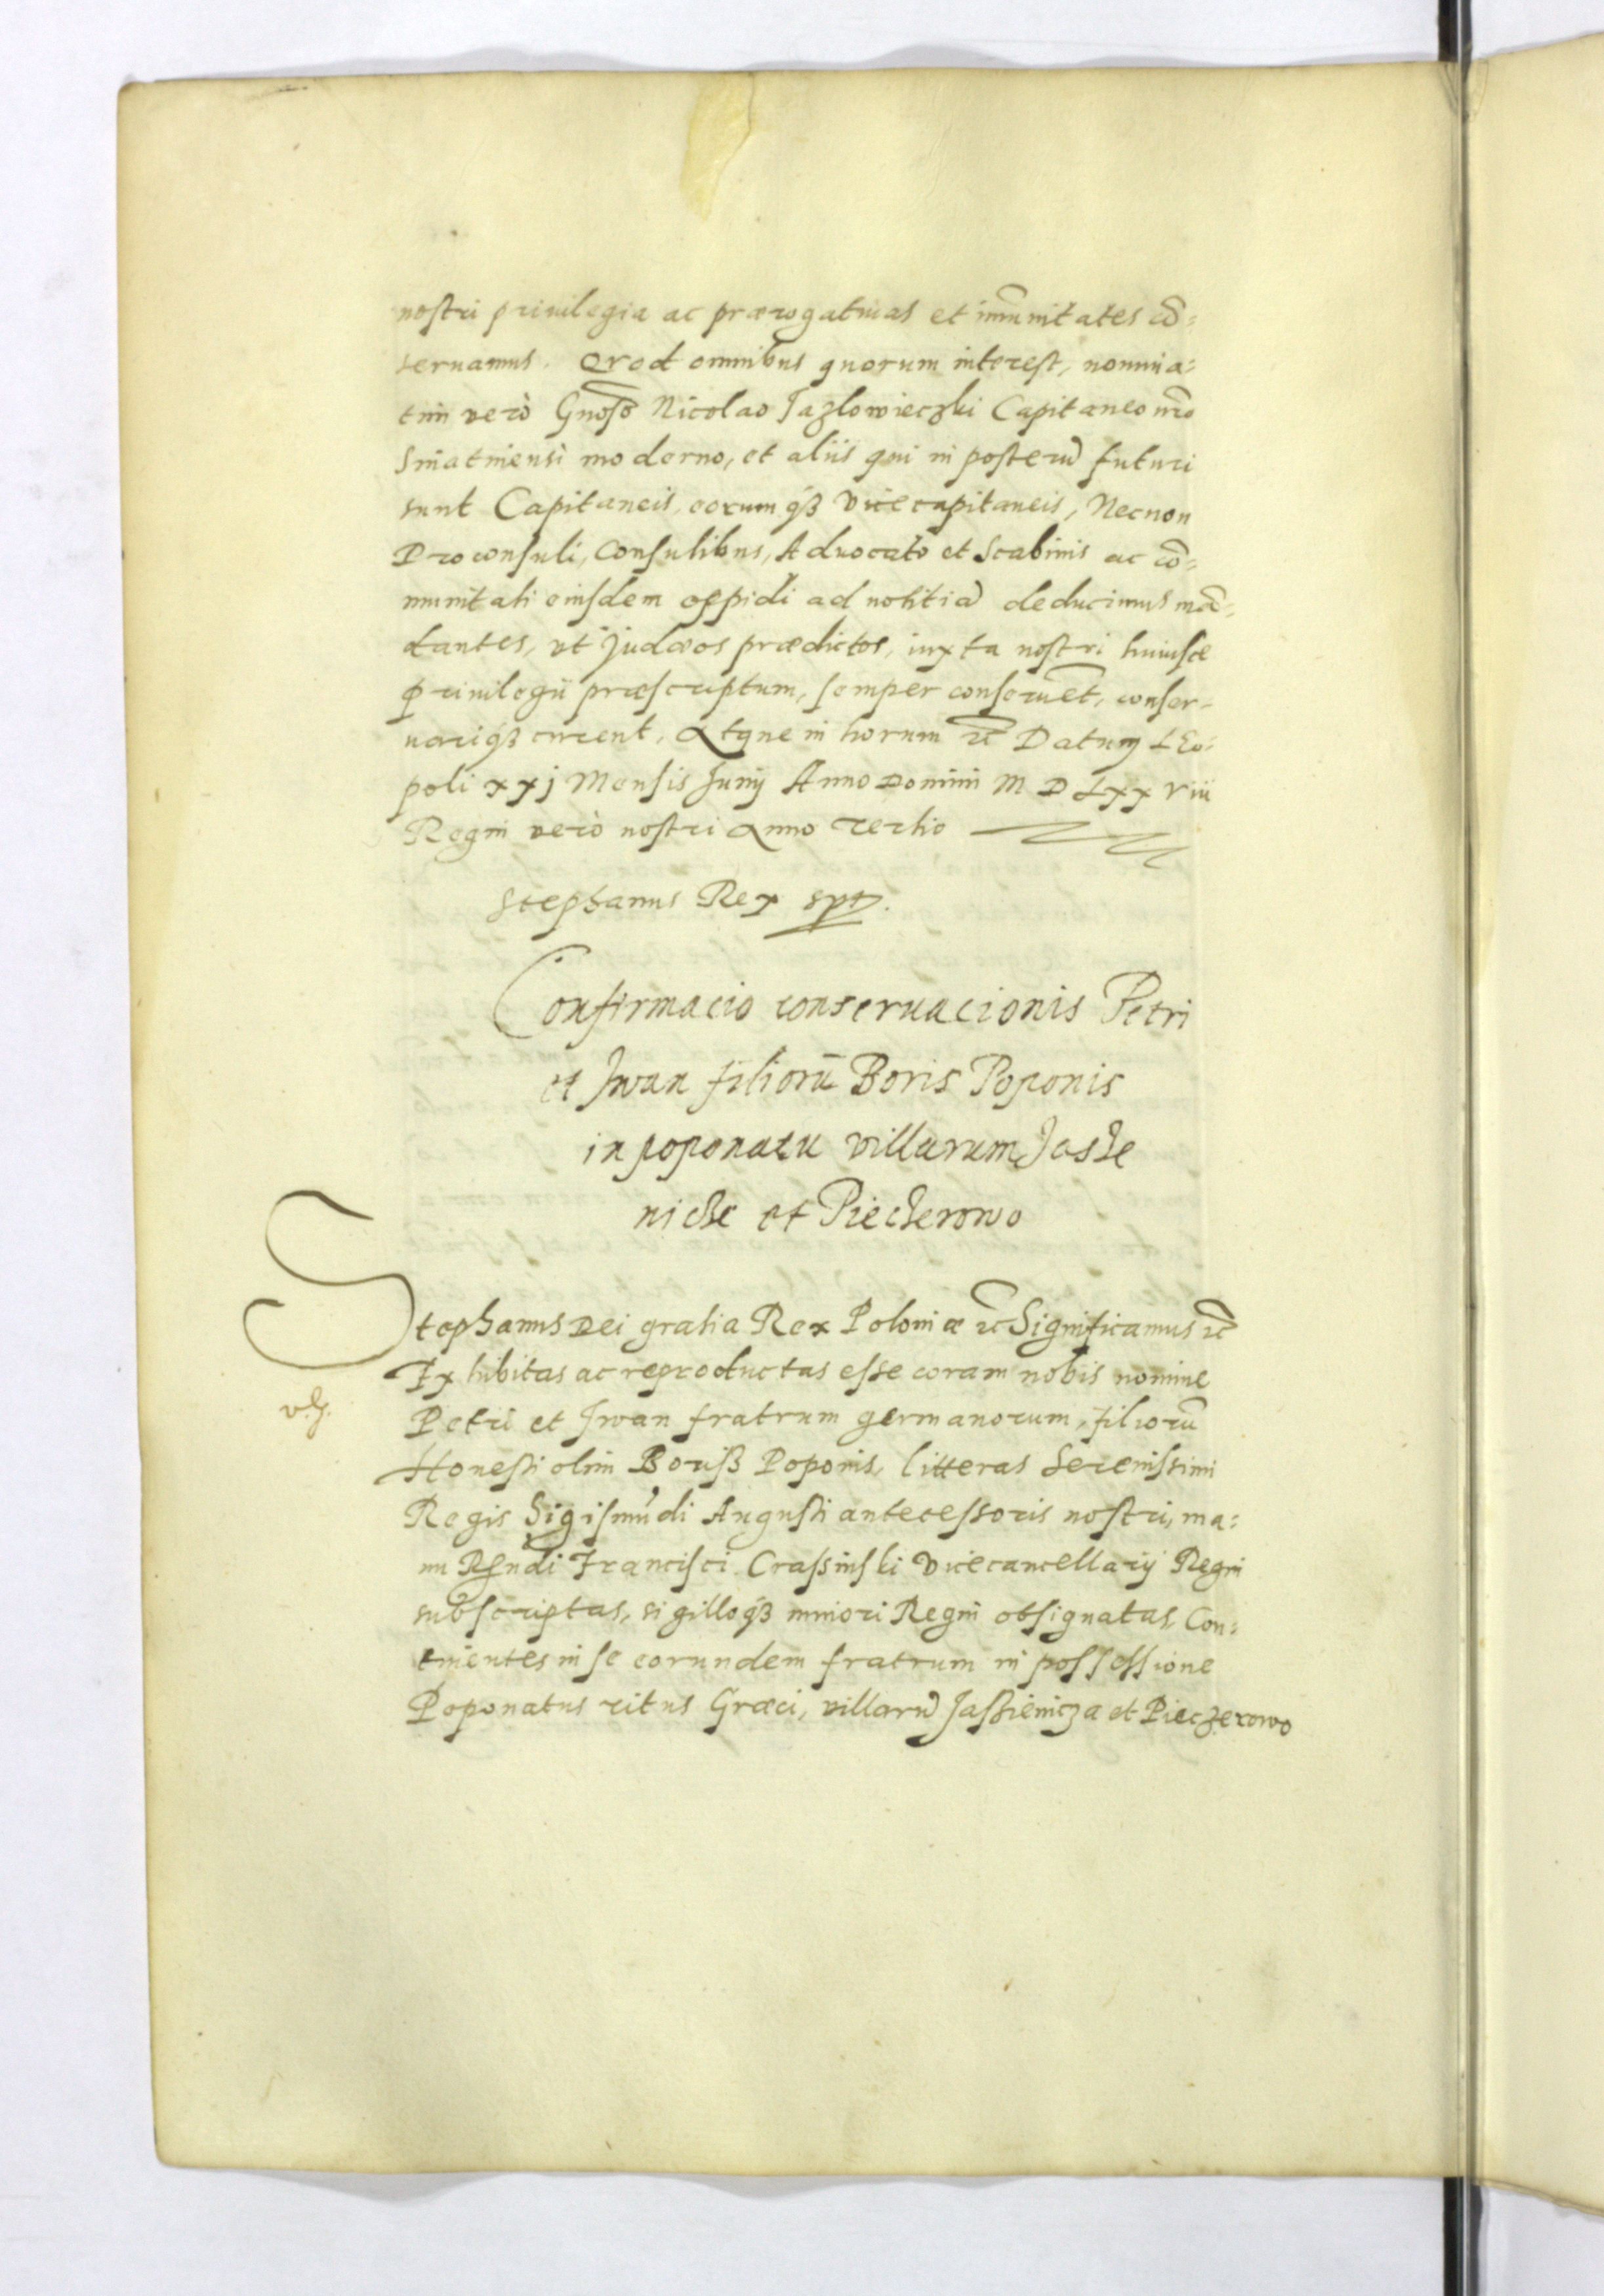 nostri priuilegia ac prærogatiuas et im̄unitates cō-
seruamus. Qvod omnibus quorum interest, nomina-
tim verò Gnōso Nicolao Jazlowieczki Capitaneo nr̄o
Sniatinensi moderno, et aliis qui in posterū futuri
sunt Capitaneis, eorumqꝫ vicecapitaneis, Necnon
Proconsuli, Consulibus, Aduocato et Scabinis ac cō-
munitati eiusdem oppidi ad notitiā deducimus mā-
dantes, vt Judæos prædictos, iuxta nostri huiusce
priuilegii præscriptum, semper conseruēt, conser-
uariqꝫ curent, Atque in horum ꝛc̄ Datum Leo-
poli xxj Mensis Junij Anno Domini M D Lxx viii
Regni verò nostri Anno Tertio
Stephanus Rex spt.
Confirmacio conseruacionis Petri
et Jwan filiorū Boris Poponis
in poponatu villarum Jasze
nicze et Pieczerowo
Stephanus Dei gratia Rex Poloniæ ꝛc̄ Significamus ꝛc̄
Exhibitas ac reproductas esse coram nobis nomine
Petri et Jwan fratrum germanorum, filiorū
Honesti olim Boriß Poponis, litteras Serenissimi
Regis Sigismūdi Augusti antecessoris nostri, ma-
nu Rn̄di Francisci Crassinski Vicecancellarij Regni
subscriptas, sigilloqꝫ minori Regni obsignatas, Con-
tinentes in se eorundem fratrum in possessione
Poponatus ritus Græci, villarū Jassienicza et Pieczerowo